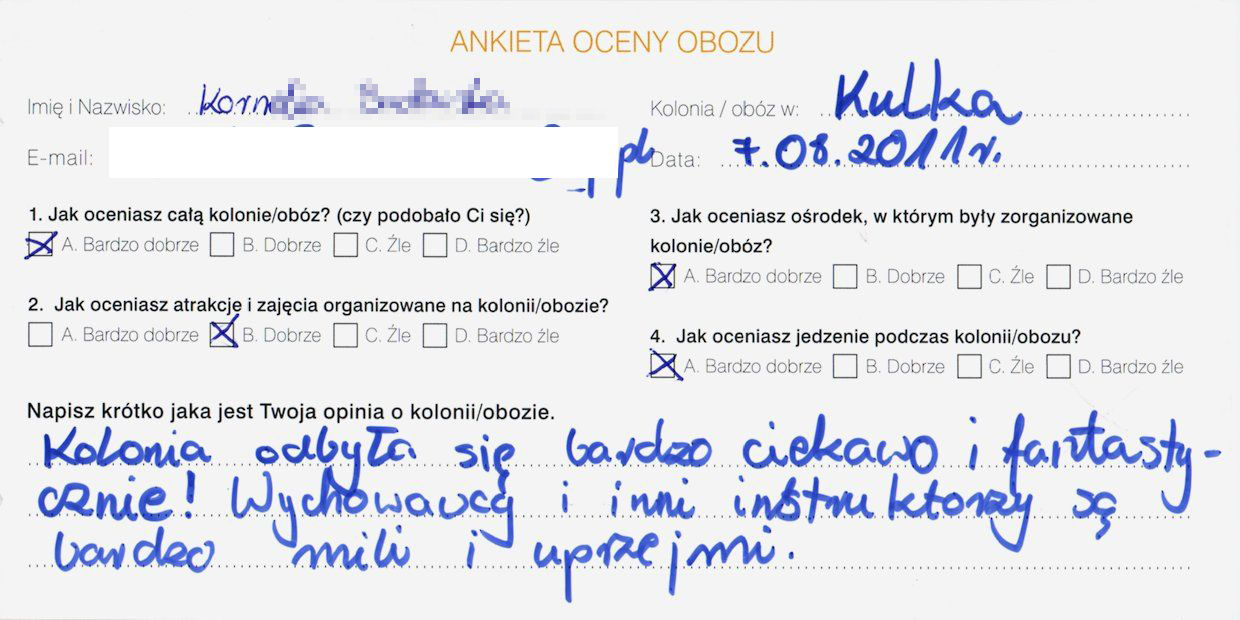 ANKIETA OCENY OBOZU
Imię i Nazwisko:
Kolonia / obóz w: Kulka
E-mail: pl
Data: 7.08.2011r.
1. Jak oceniasz całą kolonie/obóz? (czy podobało Ci się?)
A. Bardzo dobrze B. Dobrze C. Źle D. Bardzo źle
2. Jak oceniasz atrakcje i zajęcia organizowane na kolonii/obozie?
A. Bardzo dobrze B. Dobrze C. Źle D. Bardzo źle
3. Jak oceniasz ośrodek, w którym były zorganizowane
kolonie/obóz?
A. Bardzo dobrze B. Dobrze C. Źle D. Bardzo źle
4. Jak oceniasz jedzenie podczas kolonii/obozu?
A. Bardzo dobrze B. Dobrze C. Źle D. Bardzo źle
Napisz krótko jaka jest Twoja opinia o kolonii/obozie.
Kolonia odbyła się bardzo ciekawo i fantasty-
cznie! Wychowawcy i inni instruktorzy są
bardzo mili i uprzejmi.